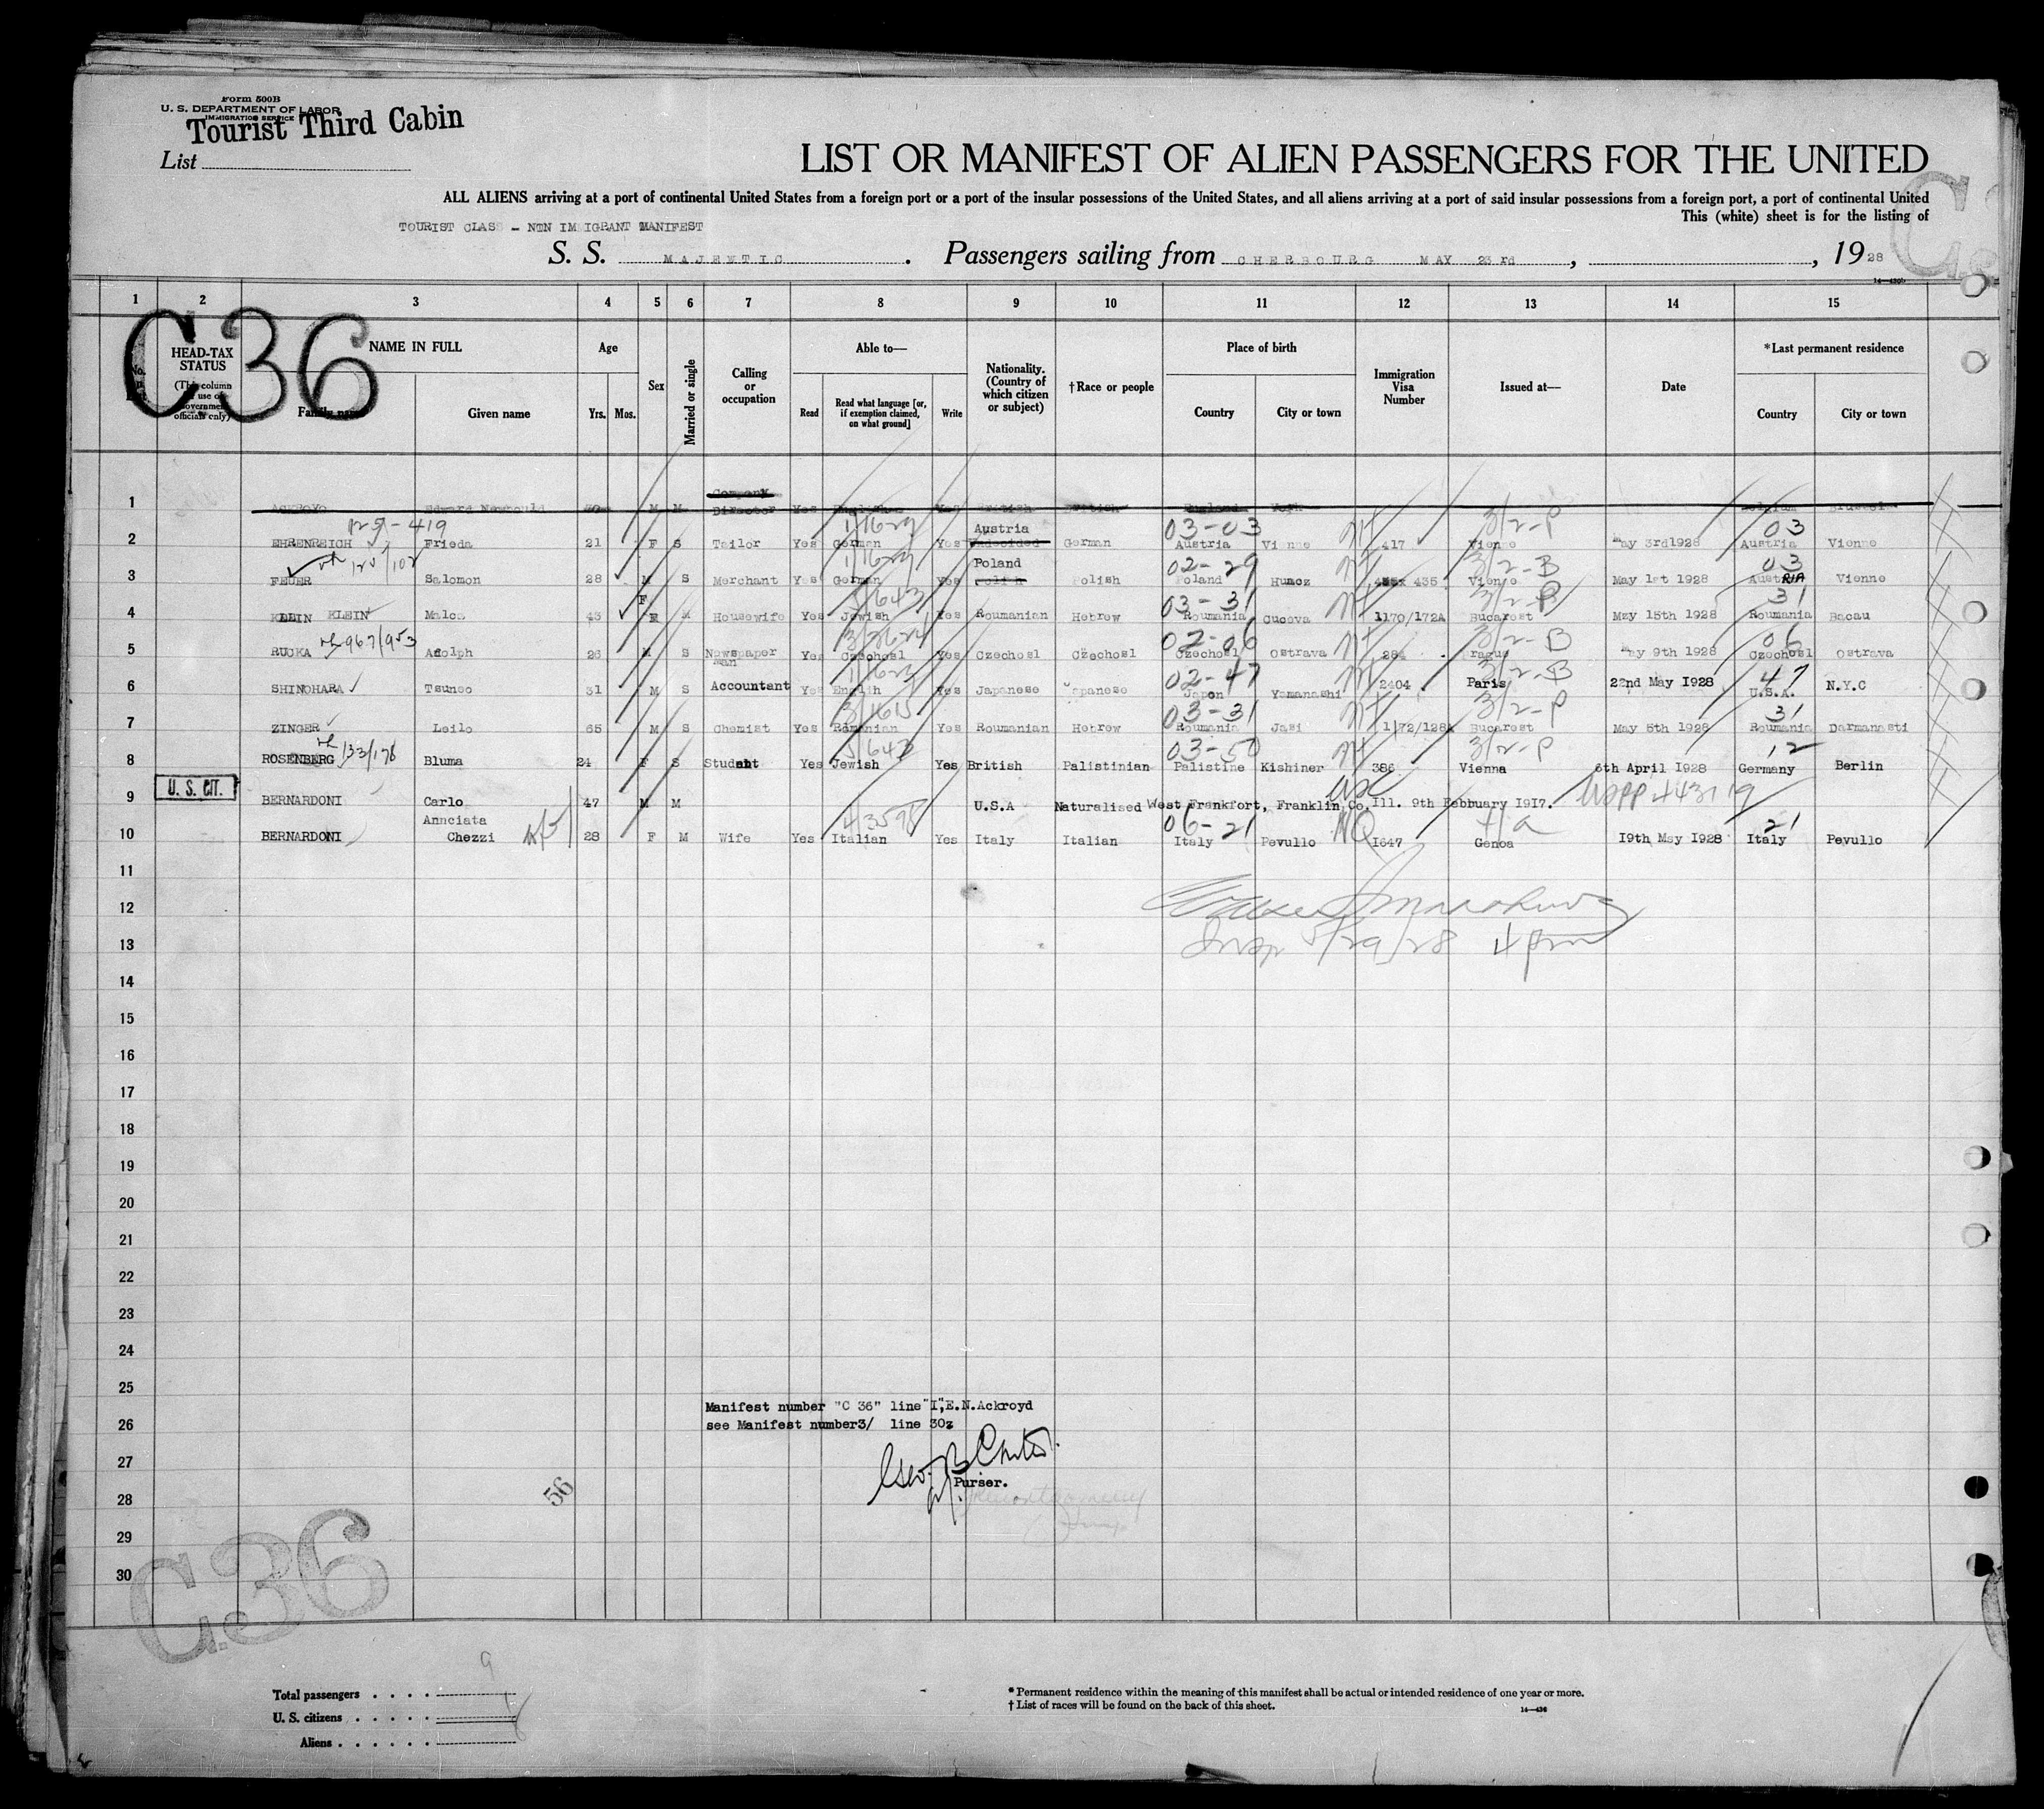 Form 500B
U. S. DEPARTMENT OF LABOR
IMMIGRATION SERVICE
Tourist Third Cabin
List
LIST OR MANIFEST OF ALIEN PASSENGERS FOR THE UNITED
ALL ALIENS arriving at a port of continental United States from a foreign port or a port of the insular possessions of the United States, and all aliens arriving at a port of said insular possessions from a foreign port, a port of continental United
This (white) sheet is for the listing of
TOURIST CLASS - NON IMMIGRANT MANIFEST
S. S. MAJESTIC . Passengers sailing from CHERBOURG MAY 23rd , , 1928
1 2 3 4 5 6 7 8 9 10 11 12 13 14 15
C36
No. on List
HEAD-TAX STATUS
(This column for use of Government officials only)
NAME IN FULL
Family name Given name
Age
Yrs. Mos.
Sex
Married or single
Calling or occupation
Able to—
Read
Read what language [or, if exemption claimed, on what ground]
Write
Nationality. (Country of which citizen or subject)
†Race or people
Place of birth
Country City or town
Immigration Visa Number
Issued at—
Date
*Last permanent residence
Country City or town
1 Edward Newbould M M Company Director Yes English Yes British British England York Belgium
125-419 1/1629 Austria 03-03 3/2-P 03
2 EHRENREICH Frieda 21 F S Tailor Yes German Yes Undecided German Austria Vienne 417 Vienne May 3rd1928 Austria Vienne
125/102 1/1629 Poland 02-29 3/2-B 03
3 FEUER Salomon 28 M S Merchant Yes German Yes Polish Polish Poland 435 Vienne May 1st 1928 AustRIA Vienne
F 5/643 03-31 3/2-P 31
4 KLEIN Malca 43 M Housewife Yes Jewish Yes Roumanian Hebrew Roumania Cucova 1170/172A Bucarest May 15th 1928 Roumania Bacau
967/953 02-06 3/2-B 06
5 RUCKA Adolph 26 M S Newspaper man Yes Czechosl Yes Czechosl Czechosl Czechosl Ostrava 284 Prague May 9th 1928 Czechosl Ostrava
1/623 02-47 3/2-B 47
6 SHINOHARA Tsuneo 31 M S Accountant Yes English Yes Japanese Japanese Japon Yamanashi 2404 Paris 22nd May I928 U.S.A. N.Y.C
3/1615 03-31 3/2-P 31
7 ZINGER Leilo 65 M S Chemist Yes Romanian Yes Roumanian Hebrew Roumania Jasi 1/72/128A Bucarest May 5th 1928 Roumania Darmanesti
133/178 5/643 03-50 3/2-P 12
8 ROSENBERG Bluma 24 F S Student Yes Jewish Yes British Palistinian Palistine Kishiner 386 Vienna 6th April I928 Germany Berlin
U. S. CIT.
9 BERNARDONI Carlo 47 M M U.S.A Naturalised West Frankfort, Franklin Co, Ill. 9th Febbuary I917.
Annciata 06-21 NQ 21
10 BERNARDONI Chezzi 28 F M Wife Yes Italian Yes Italy Italian Italy Pevullo I647 Genoa 19th May I928 Italy Pevullo
11
12
13 Insp 5/29/28 4 pm
14
15
16
17
18
19
20
21
22
23
24
25
Manifest number "C 36" line "I", E.N.Ackroyd
26 see Manifest number3/ line 30z
27
Purser.
28
56
29
30
C.36
9
Total passengers
U. S. citizens
Aliens
* Permanent residence within the meaning of this manifest shall be actual or intended residence of one year or more.
† List of races will be found on the back of this sheet.